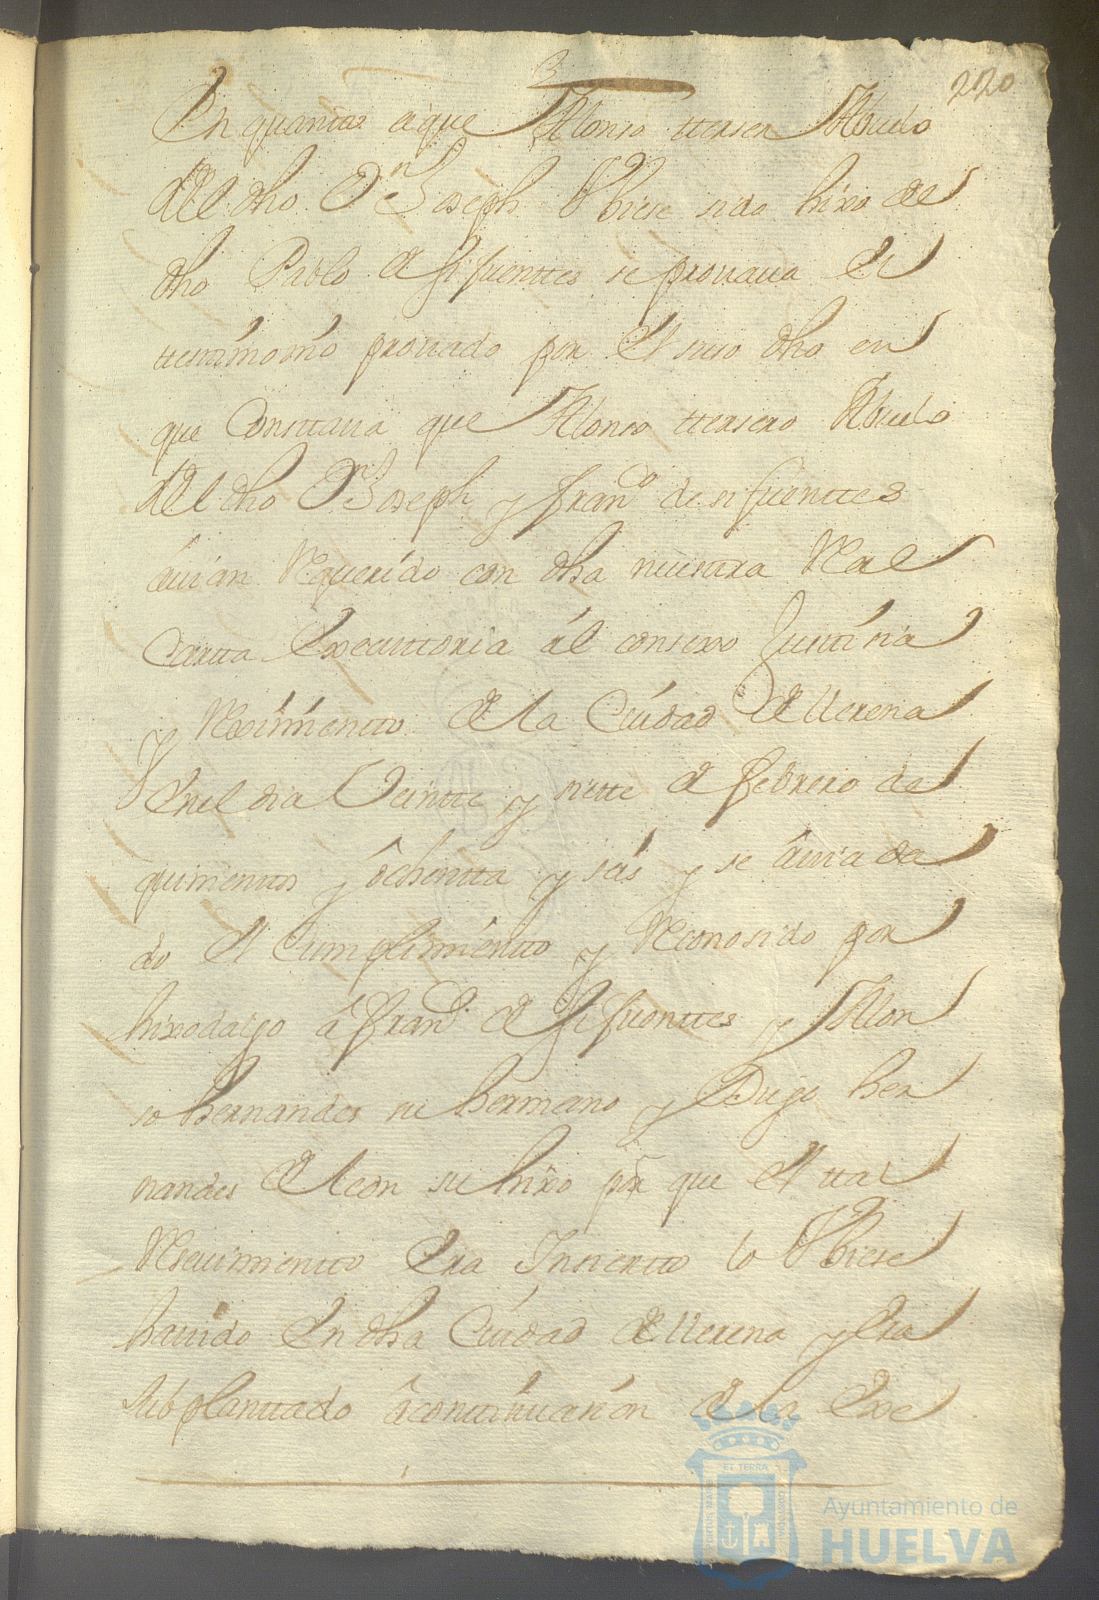 220
3
En quantto a que Alonso tterser Abuelo
del dho Dn Joseph Vbiese sido hixo del
dho Pablo de Sifuenttes se prouaua el
ttestimonio prouado por el suso dho en
que Consttaua que Alonso tterséro Abuelo
del dho Dn Joseph y Frando de sifuenttes
áuian Requerído con dha nuestra Real
Cartta Executtoria ál consexo Justísia
y Reximíentto de la Cíudad de llerena
Enel dia Veintte y siette de febrero de
quinienttos y ôchentta y séis y se âuia da
do el Cumplimíentto y Reconosido por
hixodalgo â Frando de Sifuenttes y Alon
so hernandes su hermano y Diego her
nandes de leon su hixo pr que el tal
Resiuimientto Era Insiertto lo Vbiese
hauido En dha Cíudad de llerena y Era
subplanttado âconttinuasíon de la Exe
ET TERRA
Ayuntamiento de
HUELVA